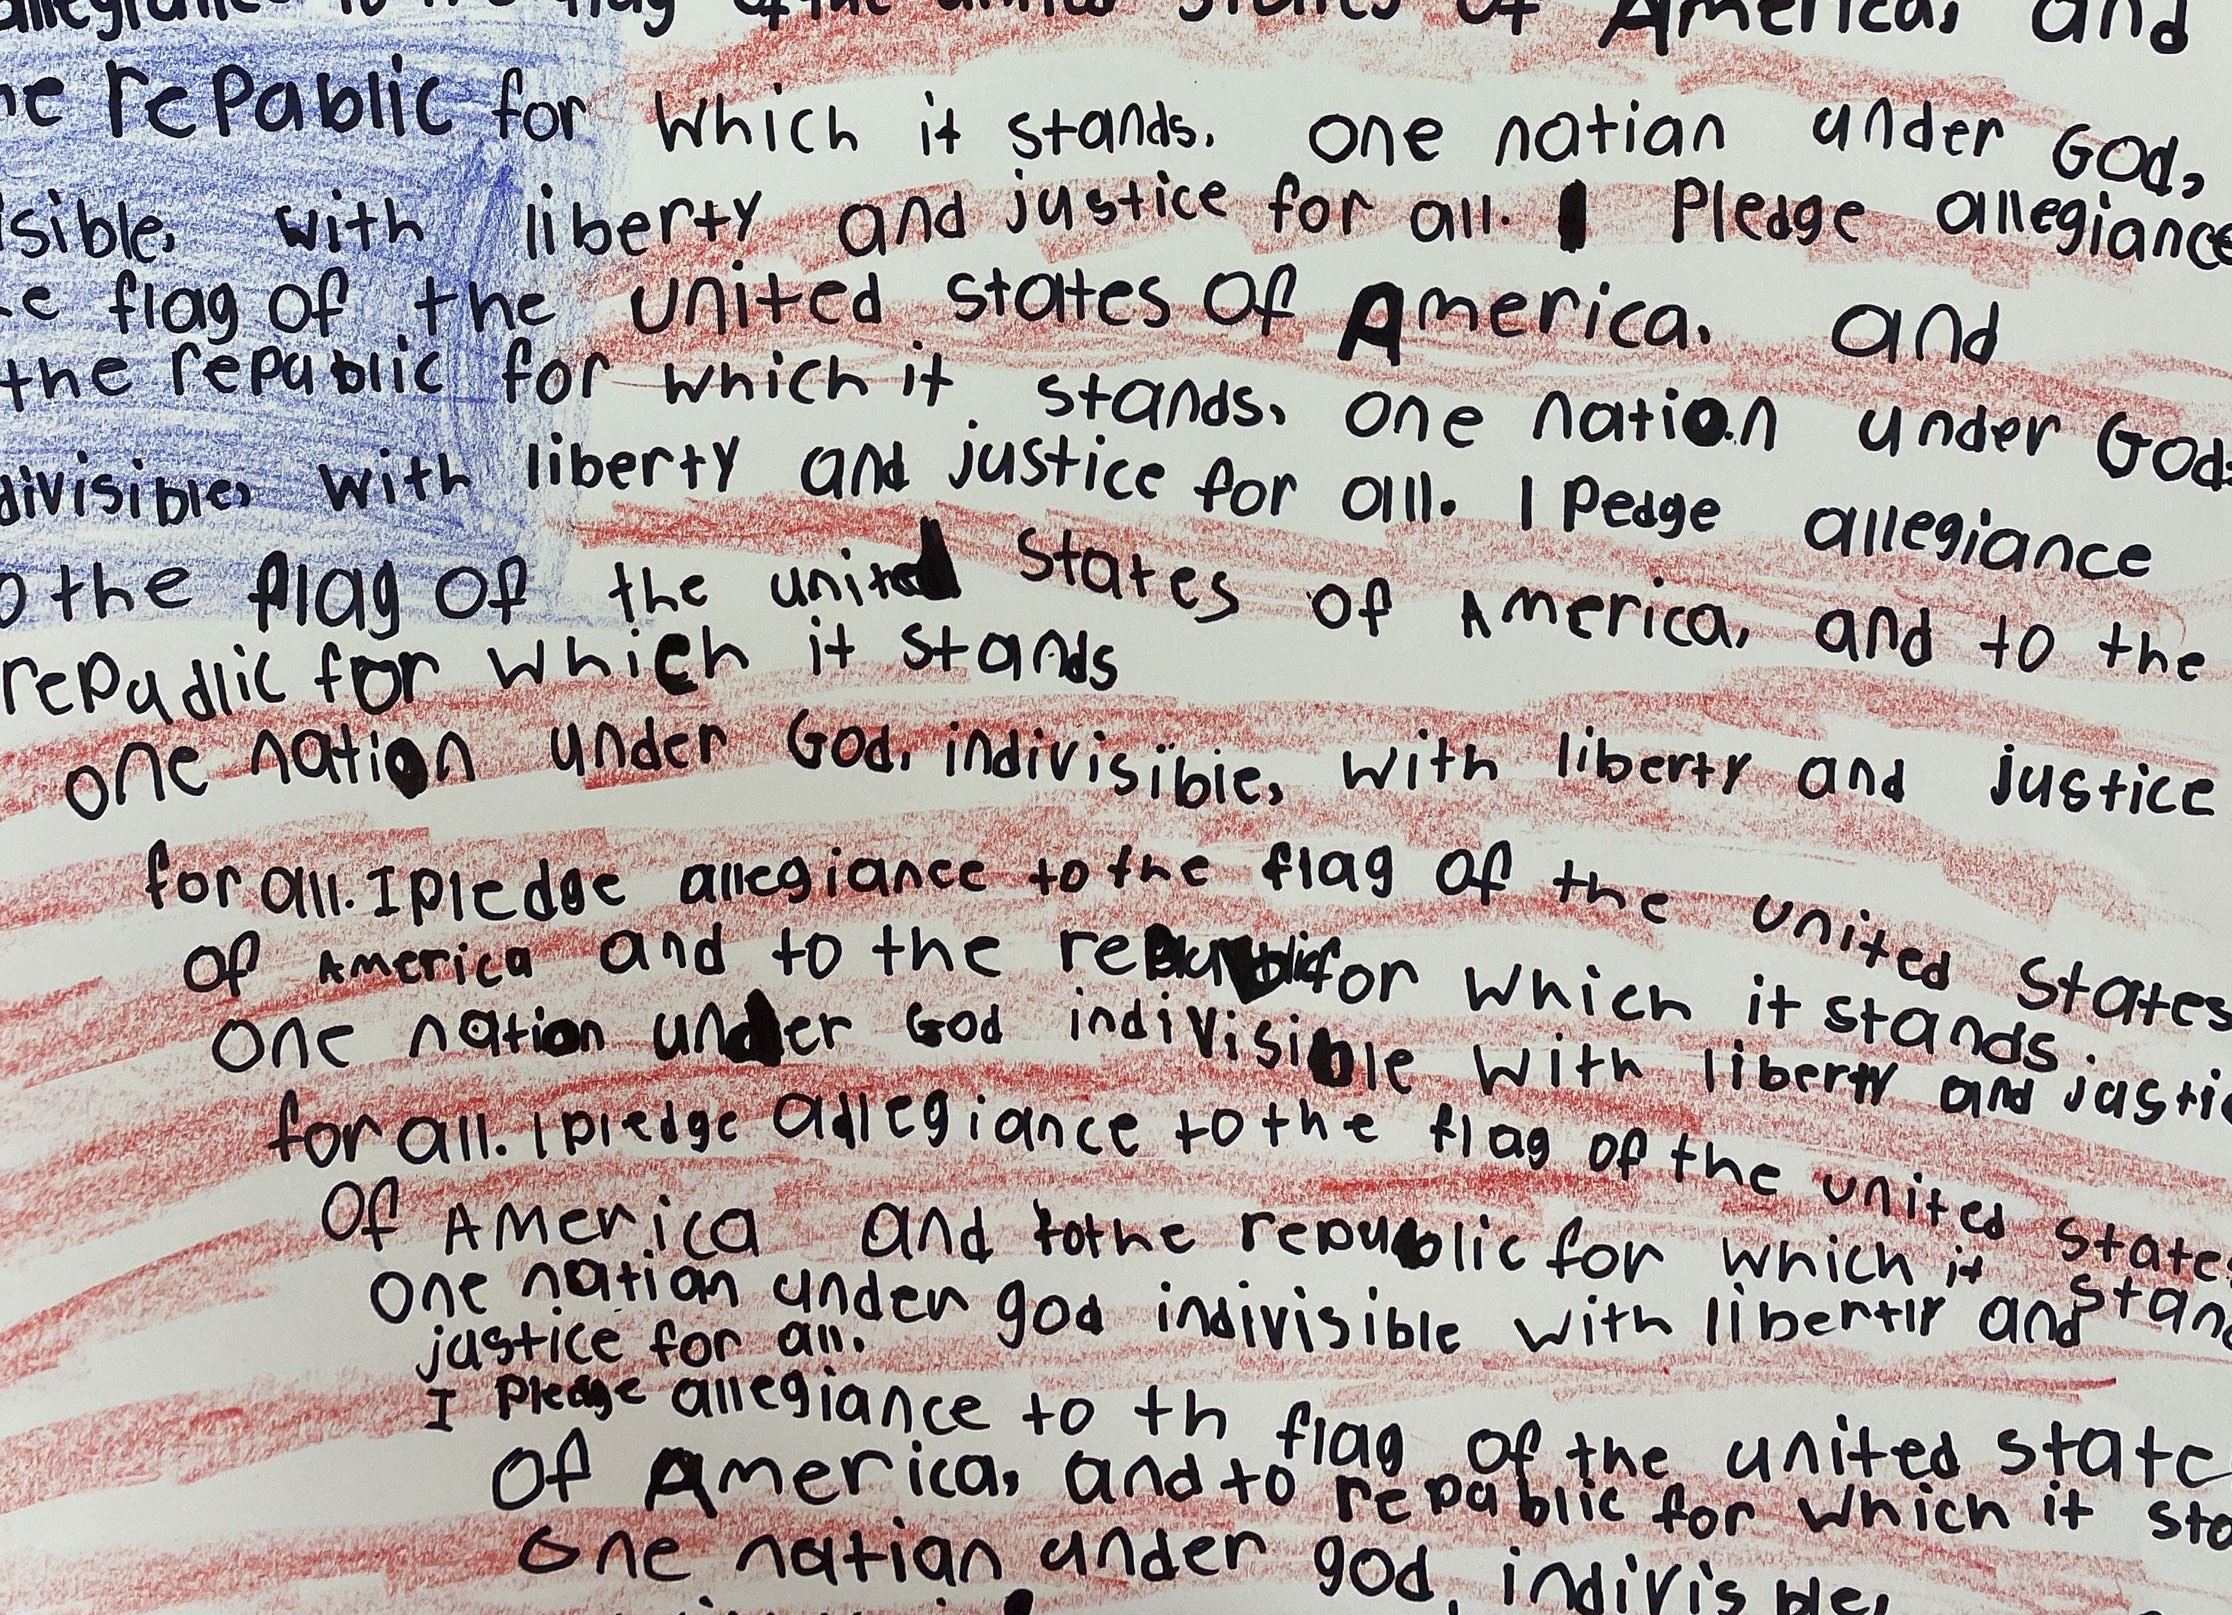 allegiance to the flag of the united states of America, and
he rePablic for which it stands. one natian under God,
isible, with liberty and justice for all. I Pledge allegiance
e flag of the united states of America, and
the repablic for which it stands, one nation under God
divisible, with liberty and justice for all. I Pedge allegiance
o the flag of the united states of America, and to the
repadlic for which it stands
one nation under God, indivisible, with liberty and justice
for all. I pledge allegiance to the flag of the united states
of America and to the republic for which it stands.
one nation under God indivisible with liberty and jastic
for all. I pledge allegiance to the flag of the united state
of America and to the republic for which it stand
one natian under god indivisible with liberty and
justice for all.
I Pledge allegiance to th flag of the united state
of America, and to repablic for which it sta
one natian under god, indivis ble,